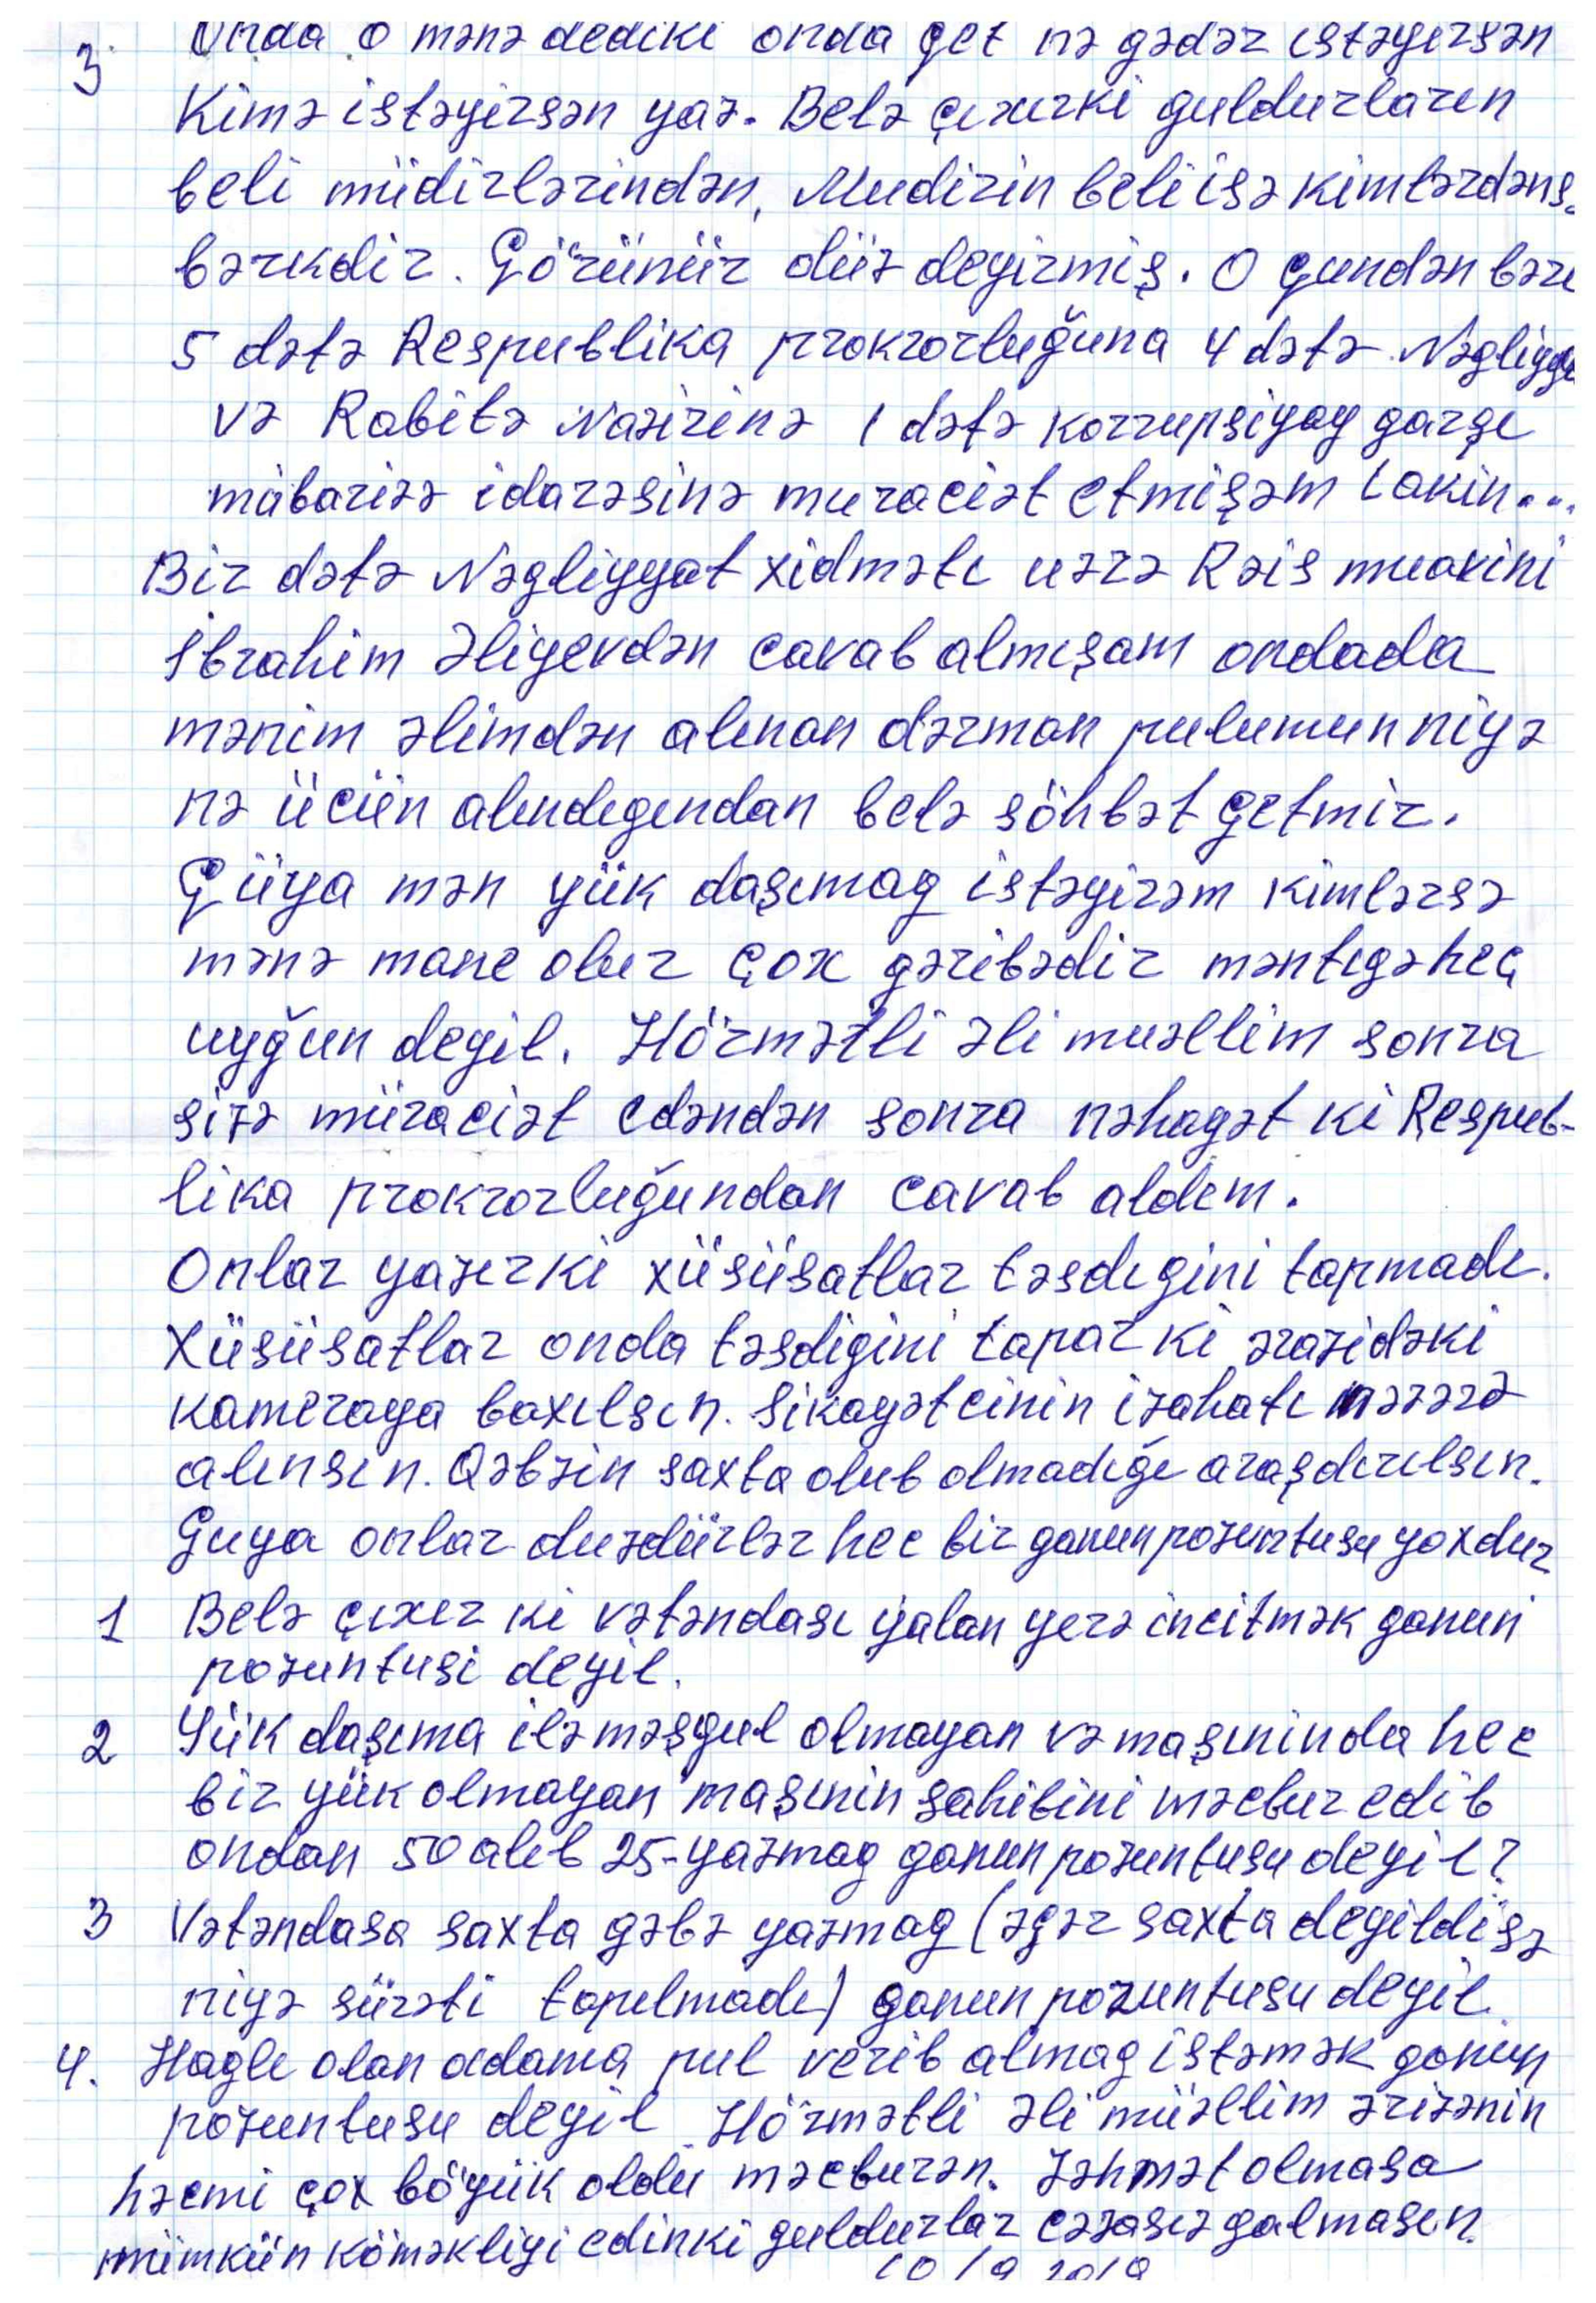 3. Onda o mənə dediki onda get nə gədər istəyirsən
Kimə istəyirsən yaz. Belə çıxırki guldurların
beli müdirlərindən, Mudirin beli isə kimlərdəns.
bərkdir. Görünür düz deyirmiş. O gundən bəri
5 dəfə Respublika prokrorluğuna 4 dəfə Nəgliyya
və Rabitə Nazirinə 1 dəfə korrupsiyay garşı
mübarizə idarəsinə muraciət etmişəm Lakin...
Bir dəfə Nəgliyyat xidməti uzrə Rəis muavini
İbrahim Əliyevdən cavab almışam ondada
mənim əlimdən alınan dərman pulumun niyə
nə ücün alındıgından belə söhbət getmir.
Güya mən yük daşımag istəyirəm kimlərsə
mənə mane olur çox gəribədir məntıgə heç
uyğun deyil. Hörmətli Əli muəllim sonra
sizə müraciət edəndən sonra nəhagət ki Respub-
lika prokrorluğundan cavab aldım.
Onlar yazır ki xüsüsatlar təsdıgini tapmadı.
Xüsüsatlar onda təsdigini tapar ki ərazidəki
kameraya baxılsın. Sikayətcinin izahatı nəzərə
alınsın. Qəbzin saxta olub olmadığı araşdırılsın.
Guya onlar duzdürlər hec bir ganun pozuntusu yoxdur
1 Belə çıxır ki vətəndası yalan yerə incitmək ganun
pozuntusi deyil.
2 Yük daşıma ilə məşgul olmayan və maşınında hec
bir yük olmayan maşının sahibini məcbur edib
ondan 50 alıb 25-yazmag ganun pozuntusu deyil?
3 Vətəndasa saxta gəbz yazmag (əgər saxta deyildisə
niyə sürəti tapılmadı) ganun pozuntusu deyil.
4. Haglı olan adama pul verib almag istəmək ganun
pozuntusu deyil. Hörmətli Əli müəllim ərizənin
həcmi çox böyük oldu məcburən. Zəhmət olmasa
mümkün köməkliyi edinki guldurlar cəzasız galmasın.